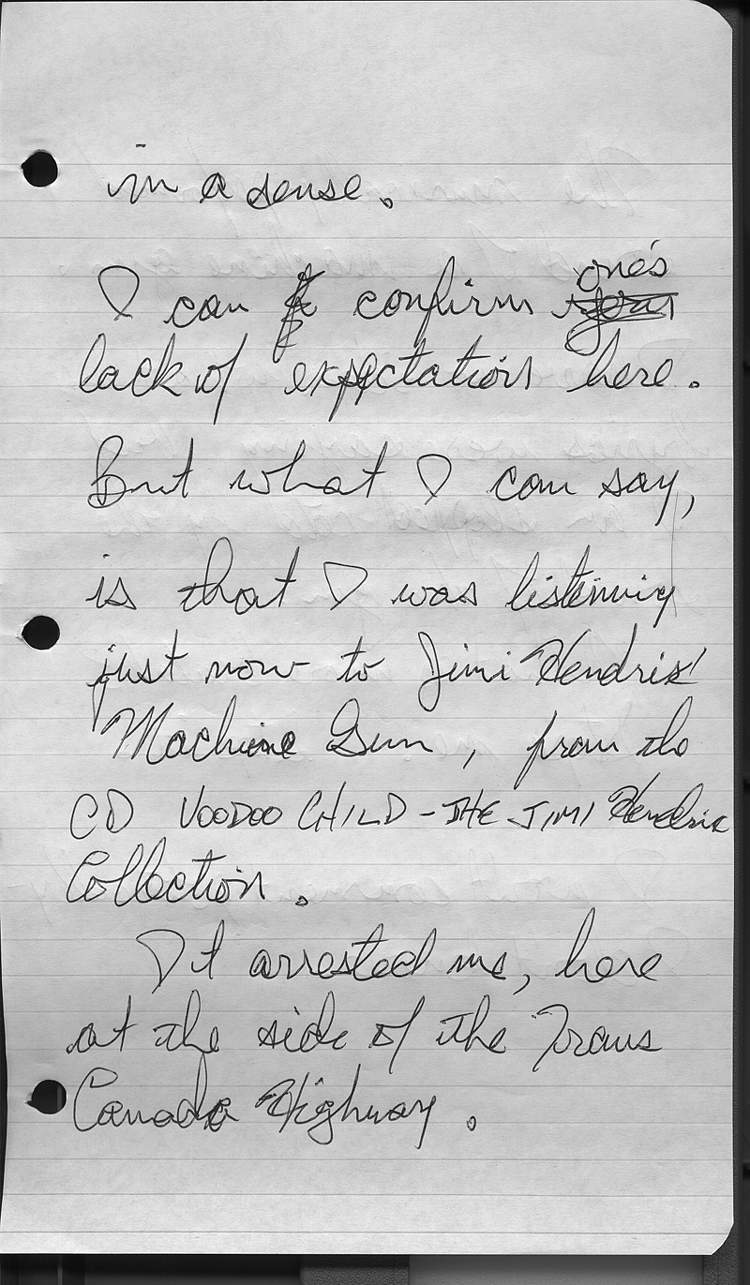 in a sense.
one's
I can confirm your
lack of expectation here.
But what I can say,
is that I was listening
just now to Jimi Hendrix'
Machine Gun, from the
CD VOODOO CHILD - THE JIMI Hendrix
Collection.
It arrested me, here
at the side of the Trans
Canada Highway.